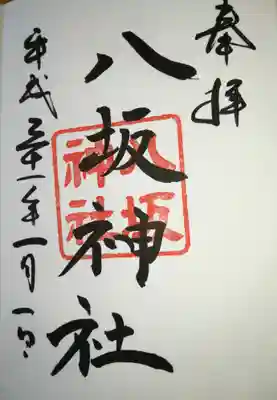 奉拝
八坂神社
八坂神社
平成三十一年一月一日